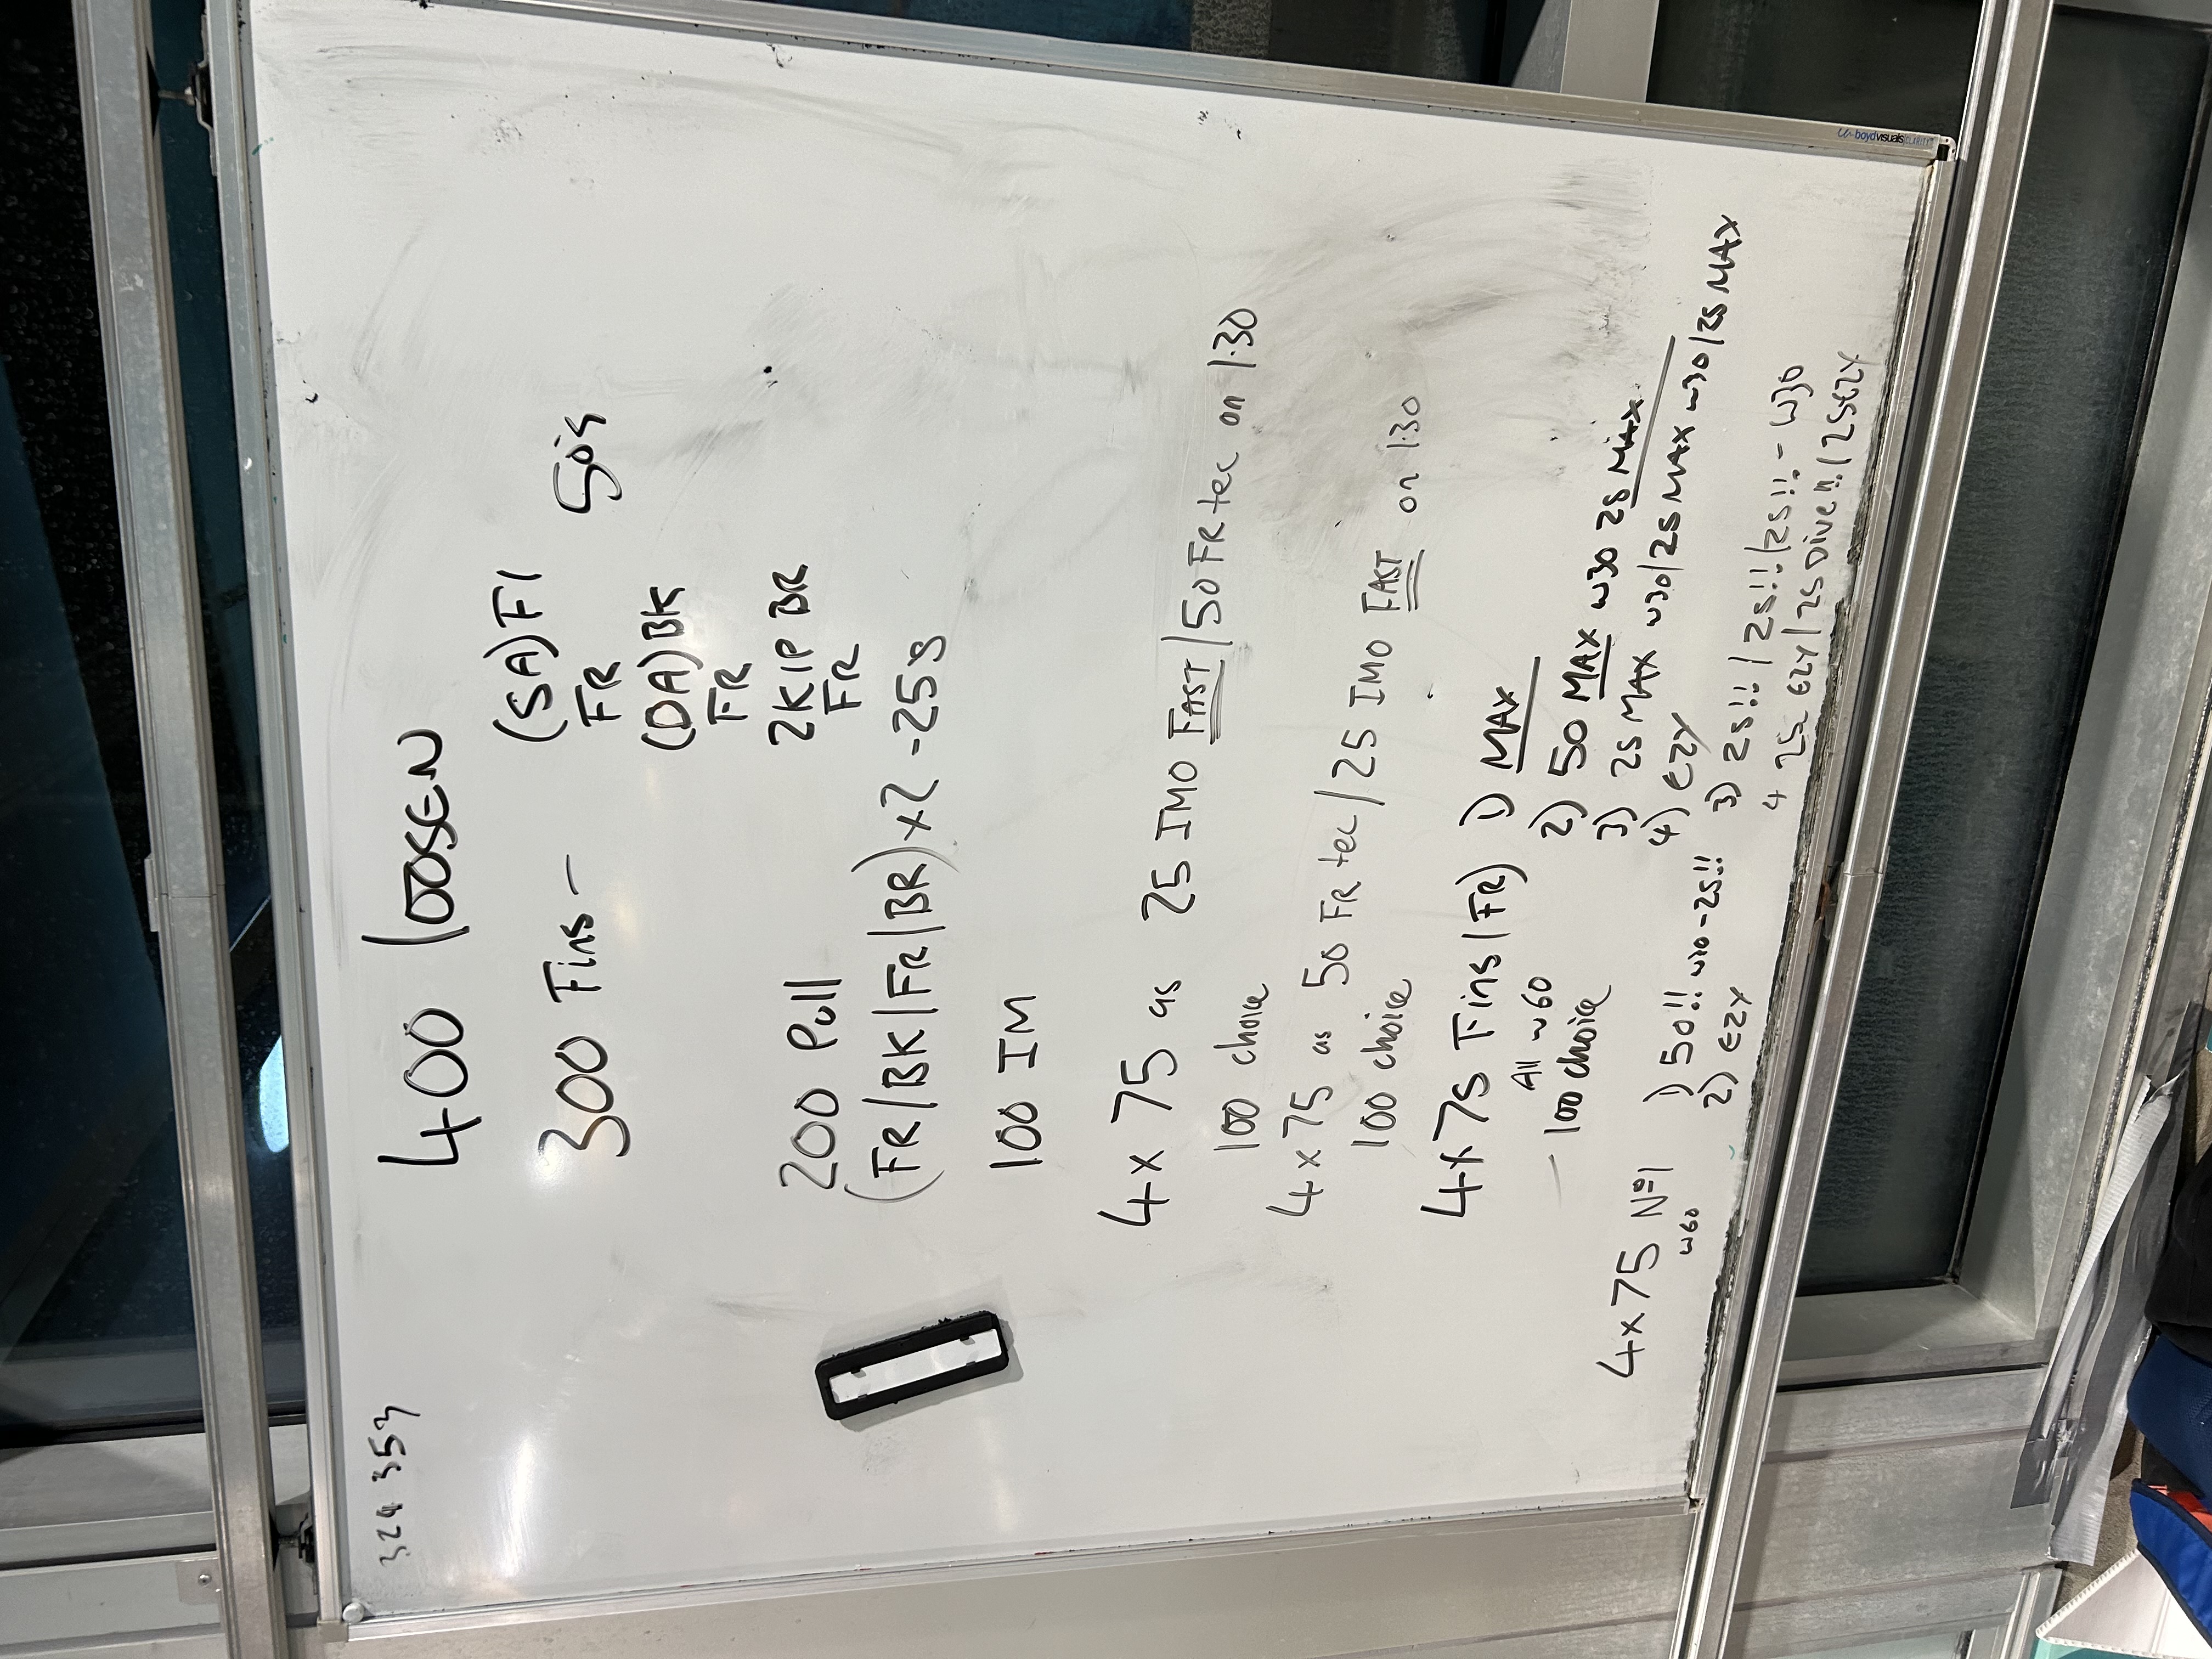 400 loosen
300 Fins -
(SA) FI
FR 50's
(DA) BK
FR
2K1P BR
FR
200 Pull
(FR/BK/FR/BR) x2 - 25s
100 IM
4 x 75 as 25 IMO FAST / 50 FR tec on 1:30
100 choice
4 x 75 as 50 FR tec / 25 IMO FAST on 1:30
100 choice
4 x 75 Fins (FR) 1) MAX
All w60
2) 50 MAX w30 25 MAX
3) 25 MAX w30/25 MAX w30/25 MAX
4) EZY
- 100 choice
4 x 75 Nº1
w60
1) 50!! w10 - 25!!
2) EZY
3) 25!! / 25!! / 25!! - w30
4 25 EZY / 25 Dive!! / 25 EZY
boydvisuals